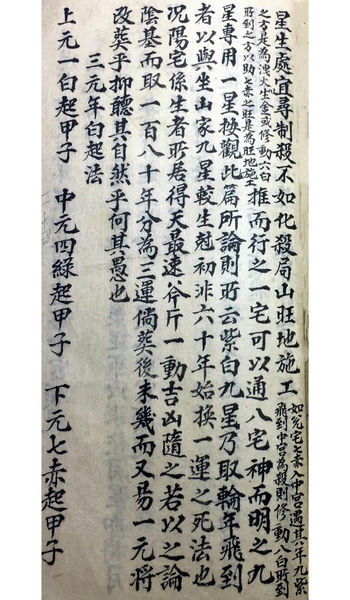 星生處宜尋制殺不如化殺局山旺地施工如兌宅七赤入中宮遇其六年九紫飛到中宮為殺則修動八白所到
之方是為洩火生金或修動六白所到之方以助七赤之旺是為旺地施工推而行之一宅可以通八宅神而明之九
星專用一星按觀此篇所論則所云紫白九星乃取輪年飛到
者以與坐山家九星較生尅初非六十年始換一運之死法也
況陽宅係生者所居得天最速斧斤一動吉凶隨之若以之論
陰基而取一百八十年分為三運倘葬後未幾而又易一元將
改葬乎抑聽其自然乎何其愚也
三元年白起法
上元一白起甲子 中元四綠起甲子 下元七赤起甲子